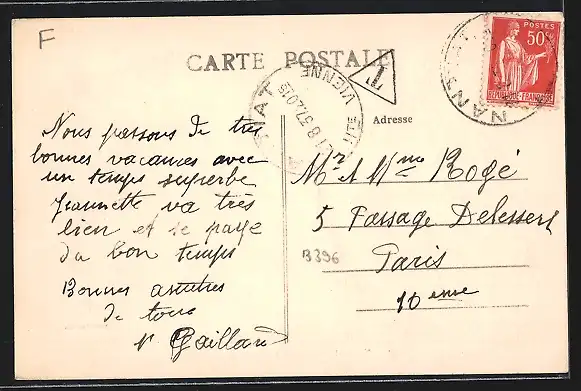 F
CARTE POSTALE
T
POSTES
50c
REPUBLIQUE-FRANÇAISE
NANTIAT
NANTIAT
VIENNE
Adresse
Nous passons de très
bonnes vacances avec
un temps superbe
Jeannette va très
bien et se paye
du bon temps
Bonnes amitiés
de tous
Gaillard
Mr et Mme Rogé
5 Passage Delessert
Paris
10 eme
B396